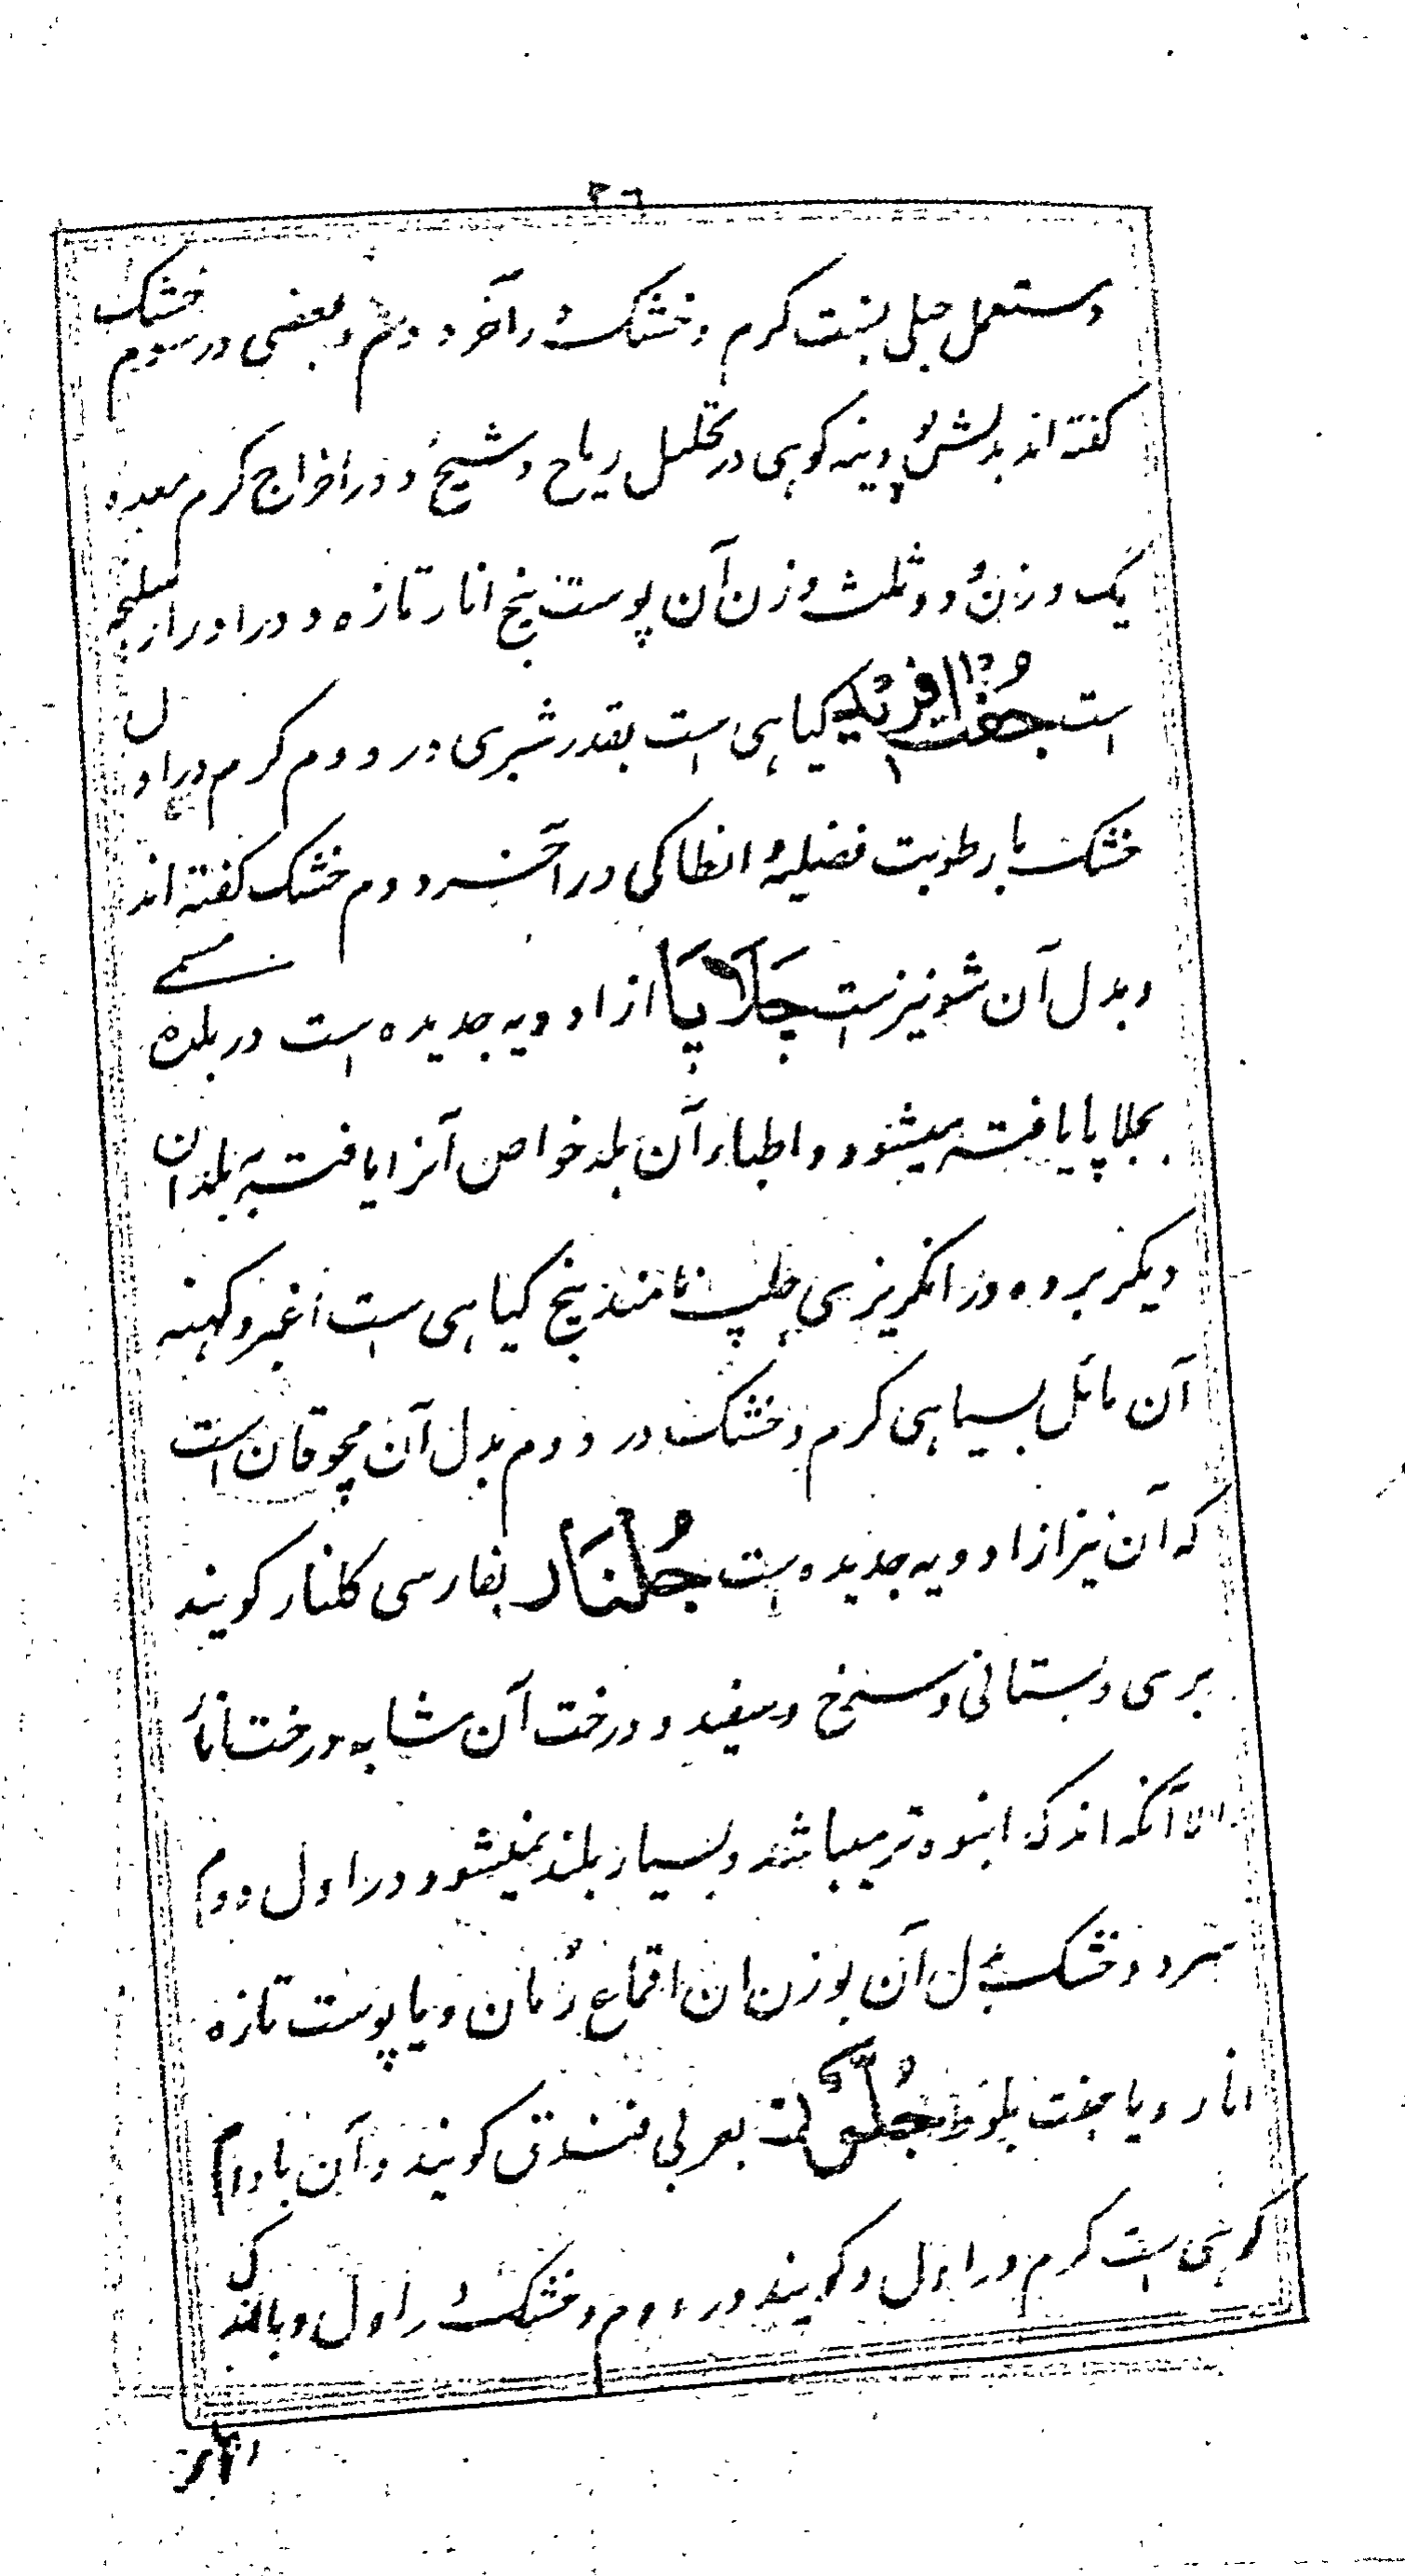 ۲٦
ومستعمل جبلی ست گرم وخشک در آخر دوم وبعضی در سوم خشک
گفته اند بدلش پودینه کوهی در تحلیل ریاح وشیح و در اخراج کرم معده
یک وزن ودوثلث وزن آن پوست بیخ انار تازه و در ادرار سلیخه
است جفت افرید گیاهی است بقدر شبری در دوم گرم در اول
خشک با رطوبت فضلیه انطاکی در آخر دوم خشک گفته اند
وبدل آن شونیز ست جلاپا از ادویه جدیده است در بلده مسمے
بجلاپا یافته میشود و اطباء آن بلد خواص آنرا یافته به بلدان
دیگر برده در انگریزی جلپ نامند بیخ گیاهی ست اغبر وکهنه
آن مائل بسیاهی گرم وخشک در دوم بدل آن مچوقان است
که آن نیز از ادویه جدیده ست جلنار بفارسی گلنار گویند
بری وبستانی وسرخ وسفید ودرخت آن مشابه درخت انار
الا آنکه اندک انبوه تر میباشد وبسیار بلند نمیشود در اول دوم
سرد وخشک بدل آن بوزن آن اقماع رمان ویا پوست تازه
انار ویا جفت بلوط جلوز بعربی فندق گویند وآن بادام
کوهی ست گرم در اول وگویند در دوم وخشک در اول وبا اندکی